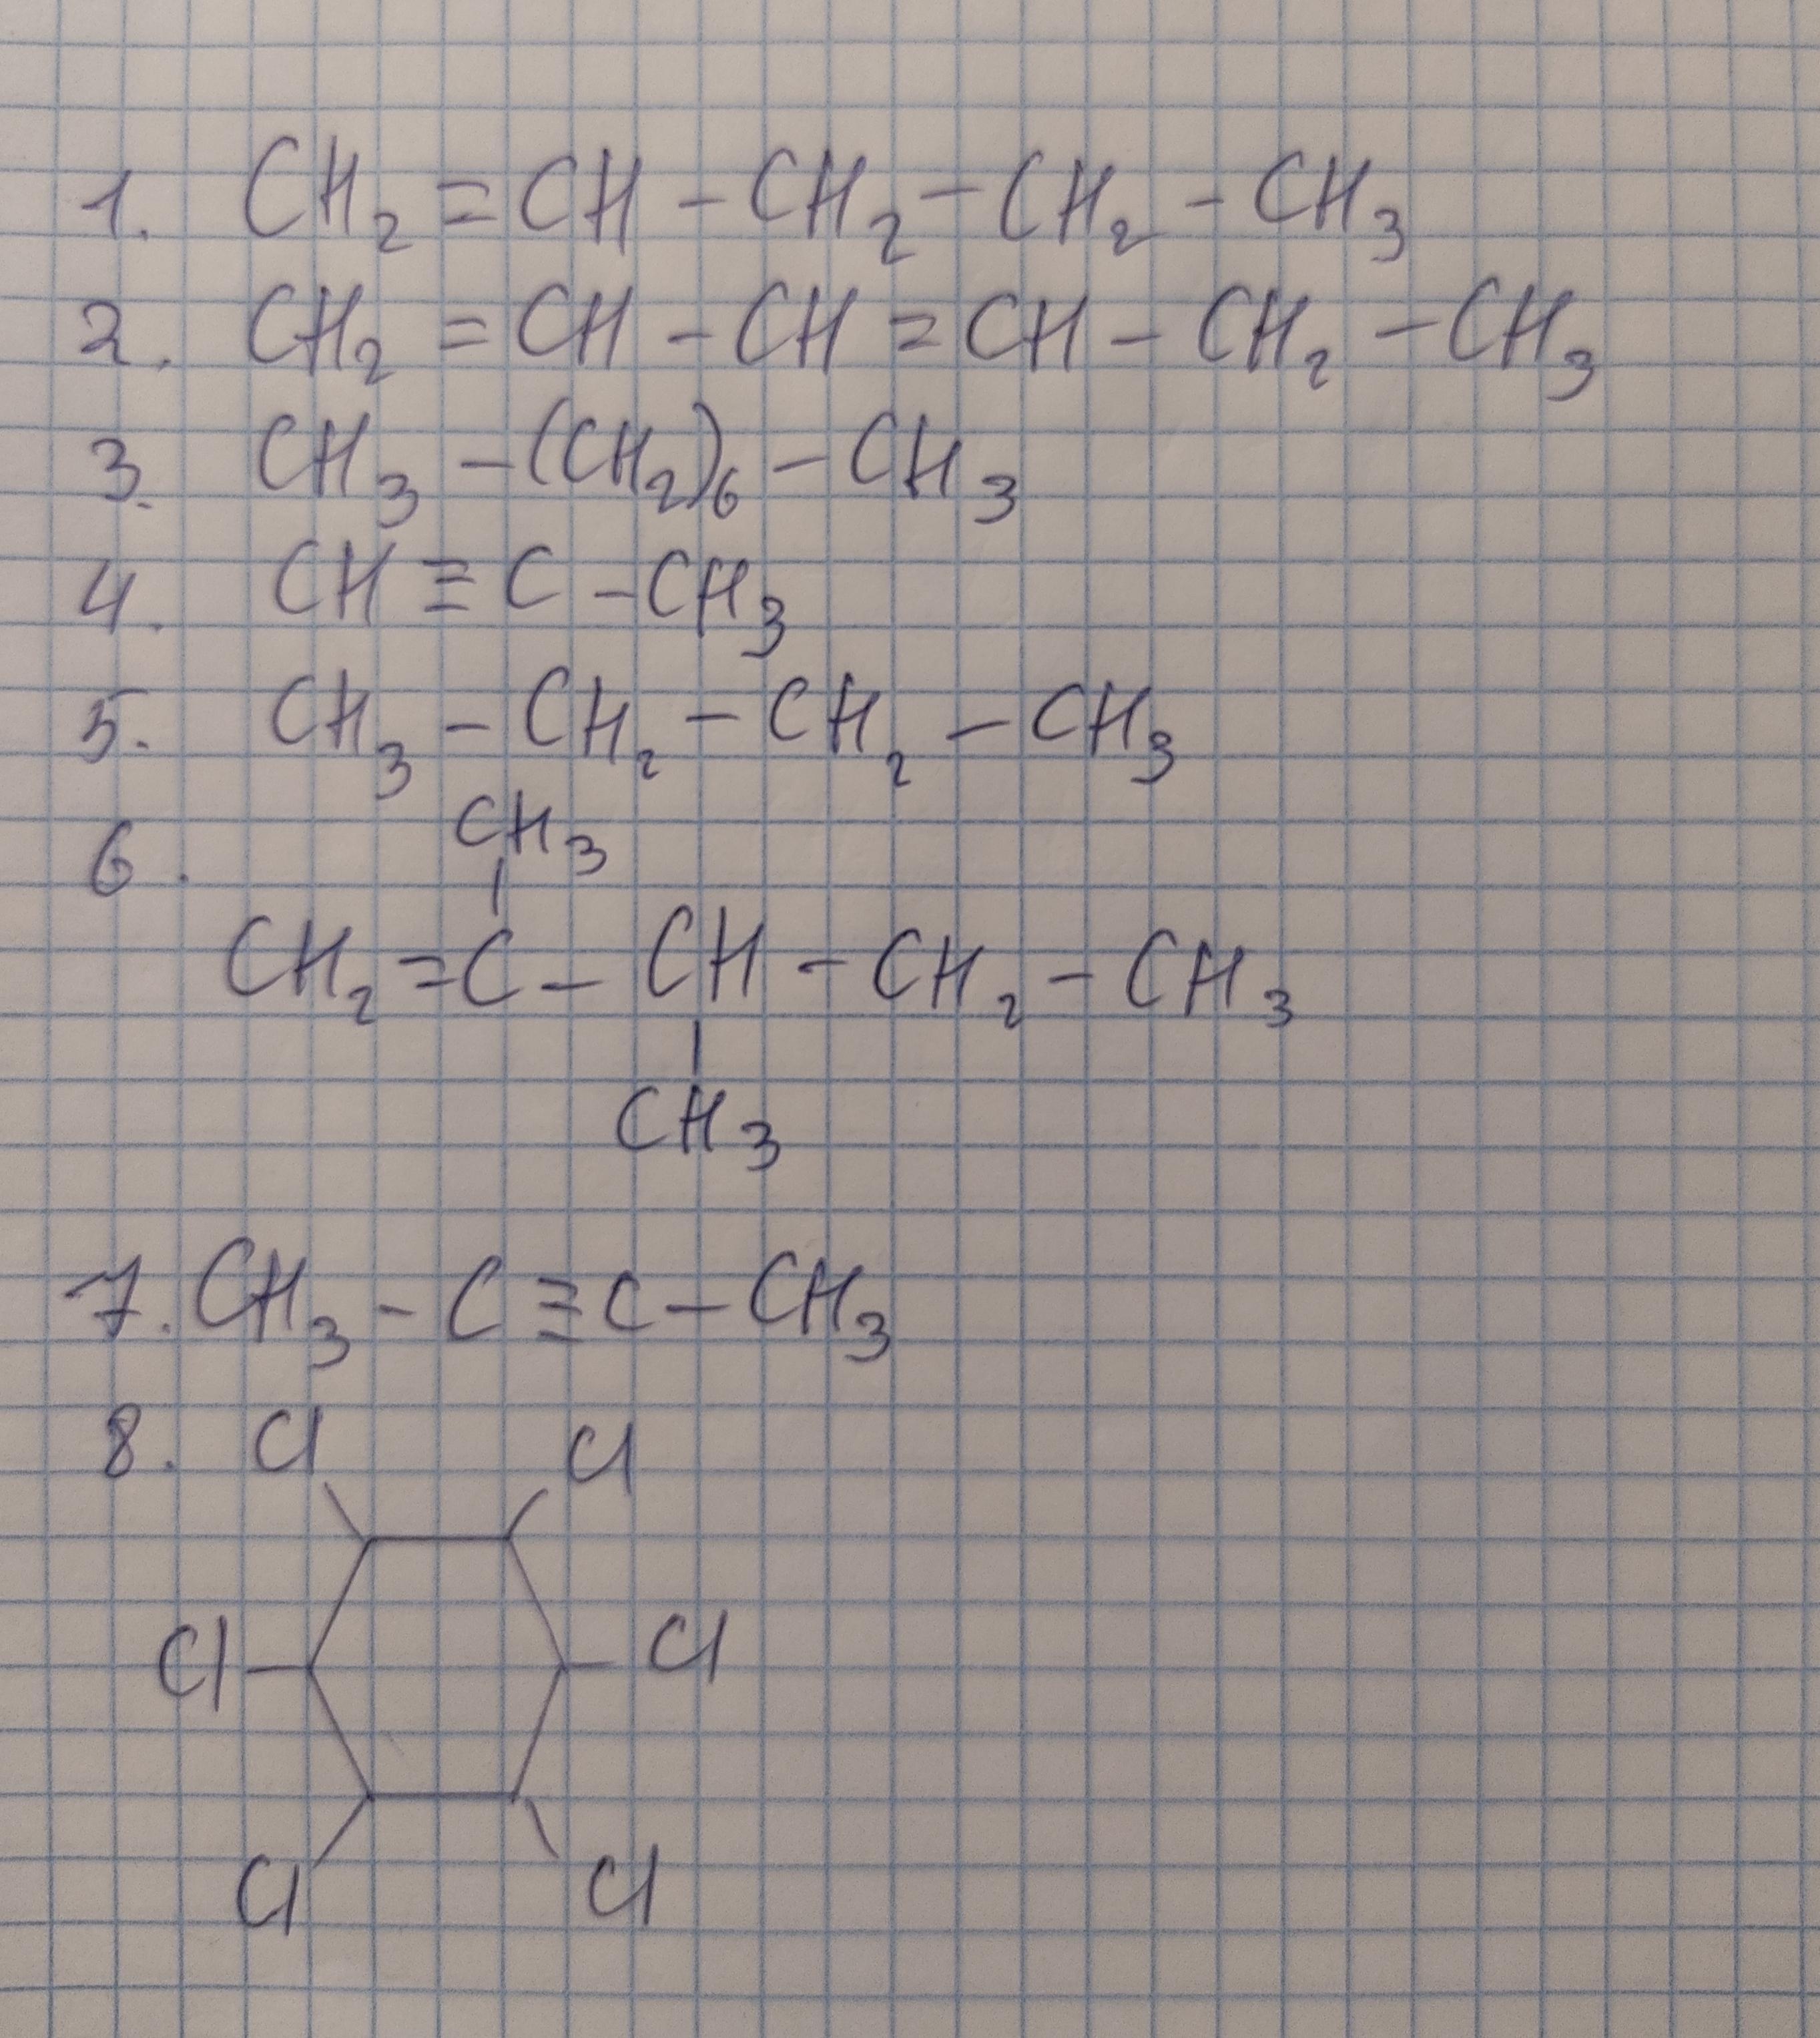 1. CH₂ = CH - CH₂ - CH₂ - CH₃
2. CH₂ = CH - CH = CH - CH₂ - CH₃
3. CH₃ - (CH₂)₆ - CH₃
4. CH ≡ C - CH₃
5. CH₃ - CH₂ - CH₂ - CH₃
6. CH₃
CH₂ = C - CH - CH₂ - CH₃
CH₃
7. CH₃ - C ≡ C - CH₃
8. Cl Cl
Cl Cl
Cl Cl